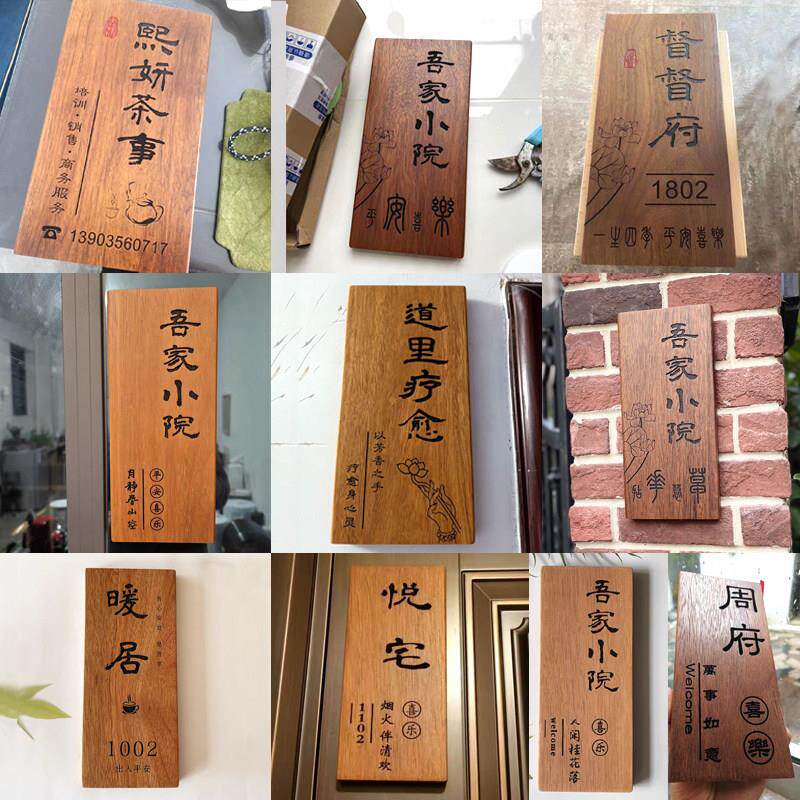 熙妍茶事
培训·销售·商务服务
☎ 13903560717
吾家小院
平安喜樂
督督府
1802
一生四季 平安喜樂
吾家小院
平安喜乐
月静叠山空
道里疗愈
以芳香之手
疗愈身心灵
吾家小院
暖居
1002
出入平安
悦宅
喜乐
烟火伴清欢
1102
吾家小院
喜乐
人闲桂花落
welcome
周府
喜樂
萬事如意
Welcome